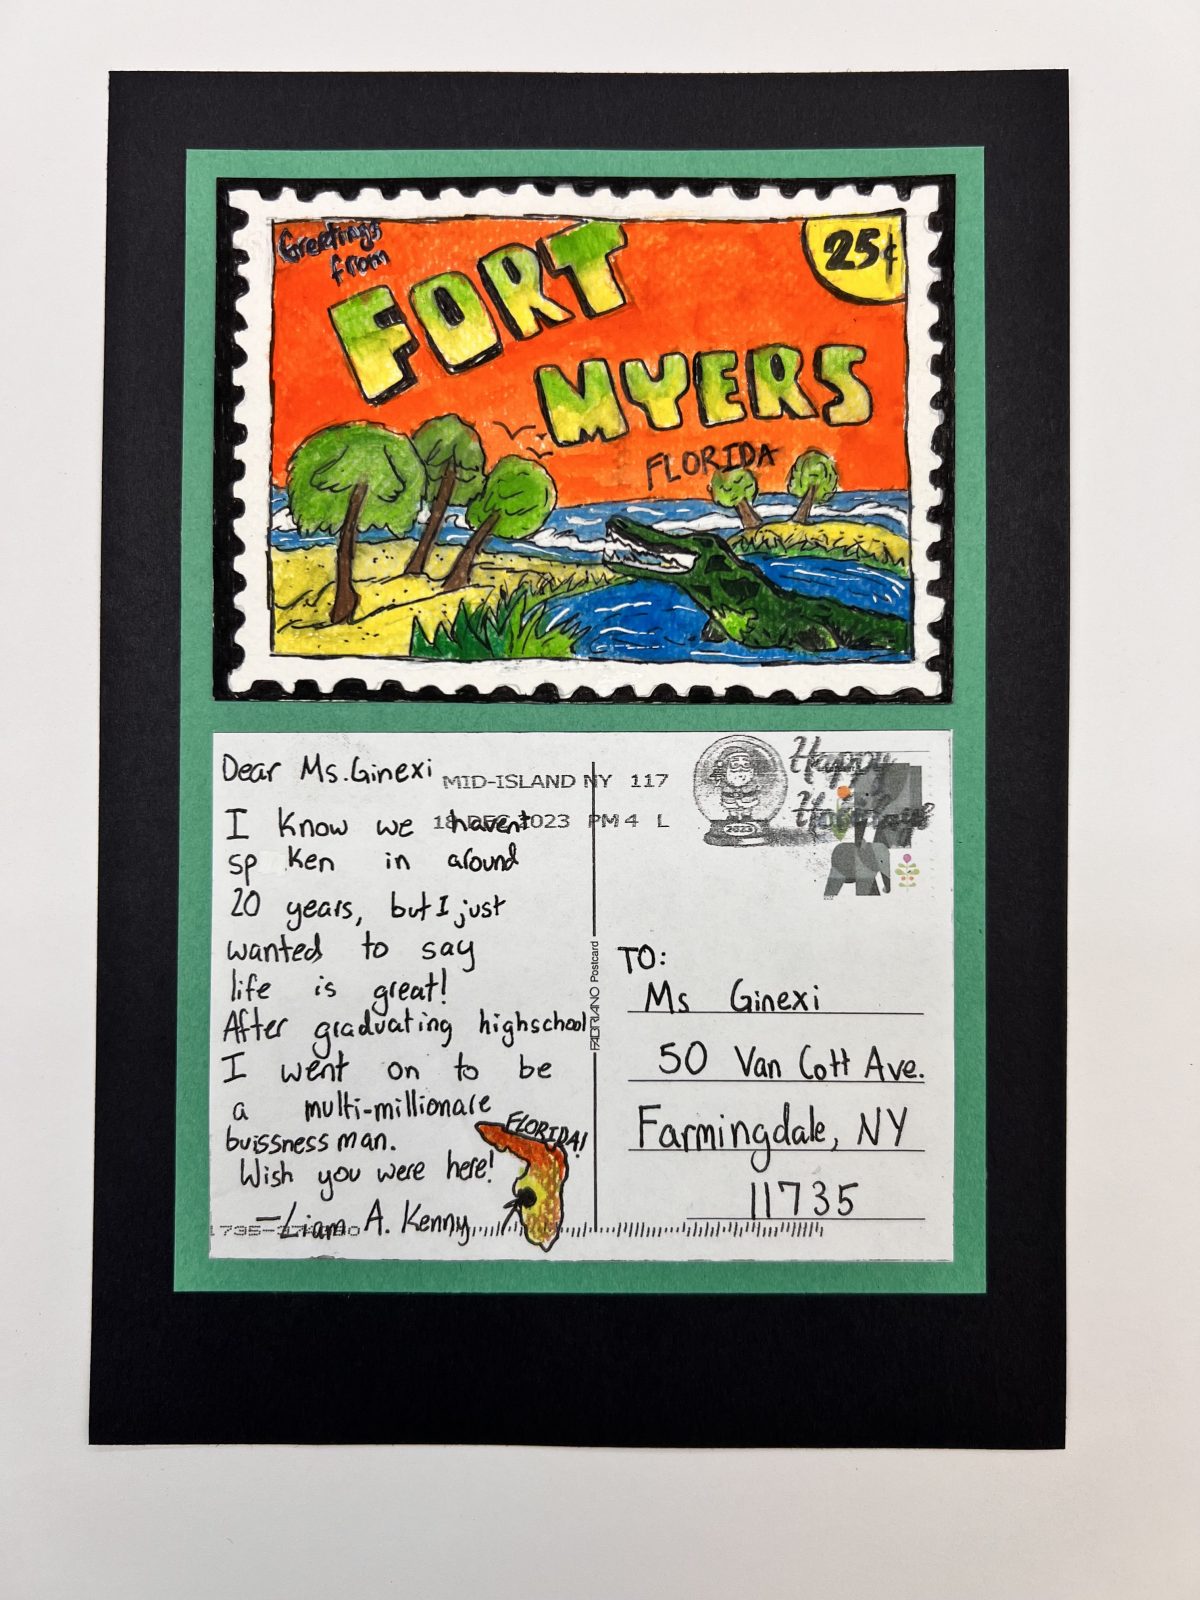 Greetings
from
FORT
MYERS
FLORIDA
25¢
Dear Ms. Ginexi
I know we havent
sp ken in around
20 years, but I just
wanted to say
life is great!
After graduating highschool
I went on to be
a multi-millionare
buissness man.
Wish you were here!
- Liam A. Kenny
FLORIDA!
MID-ISLAND NY 117
18 DEC 2023 PM 4 L
2023
Happy
Holidays
FABRIANO Postcard
TO:
Ms Ginexi
50 Van Cott Ave.
Farmingdale, NY
11735